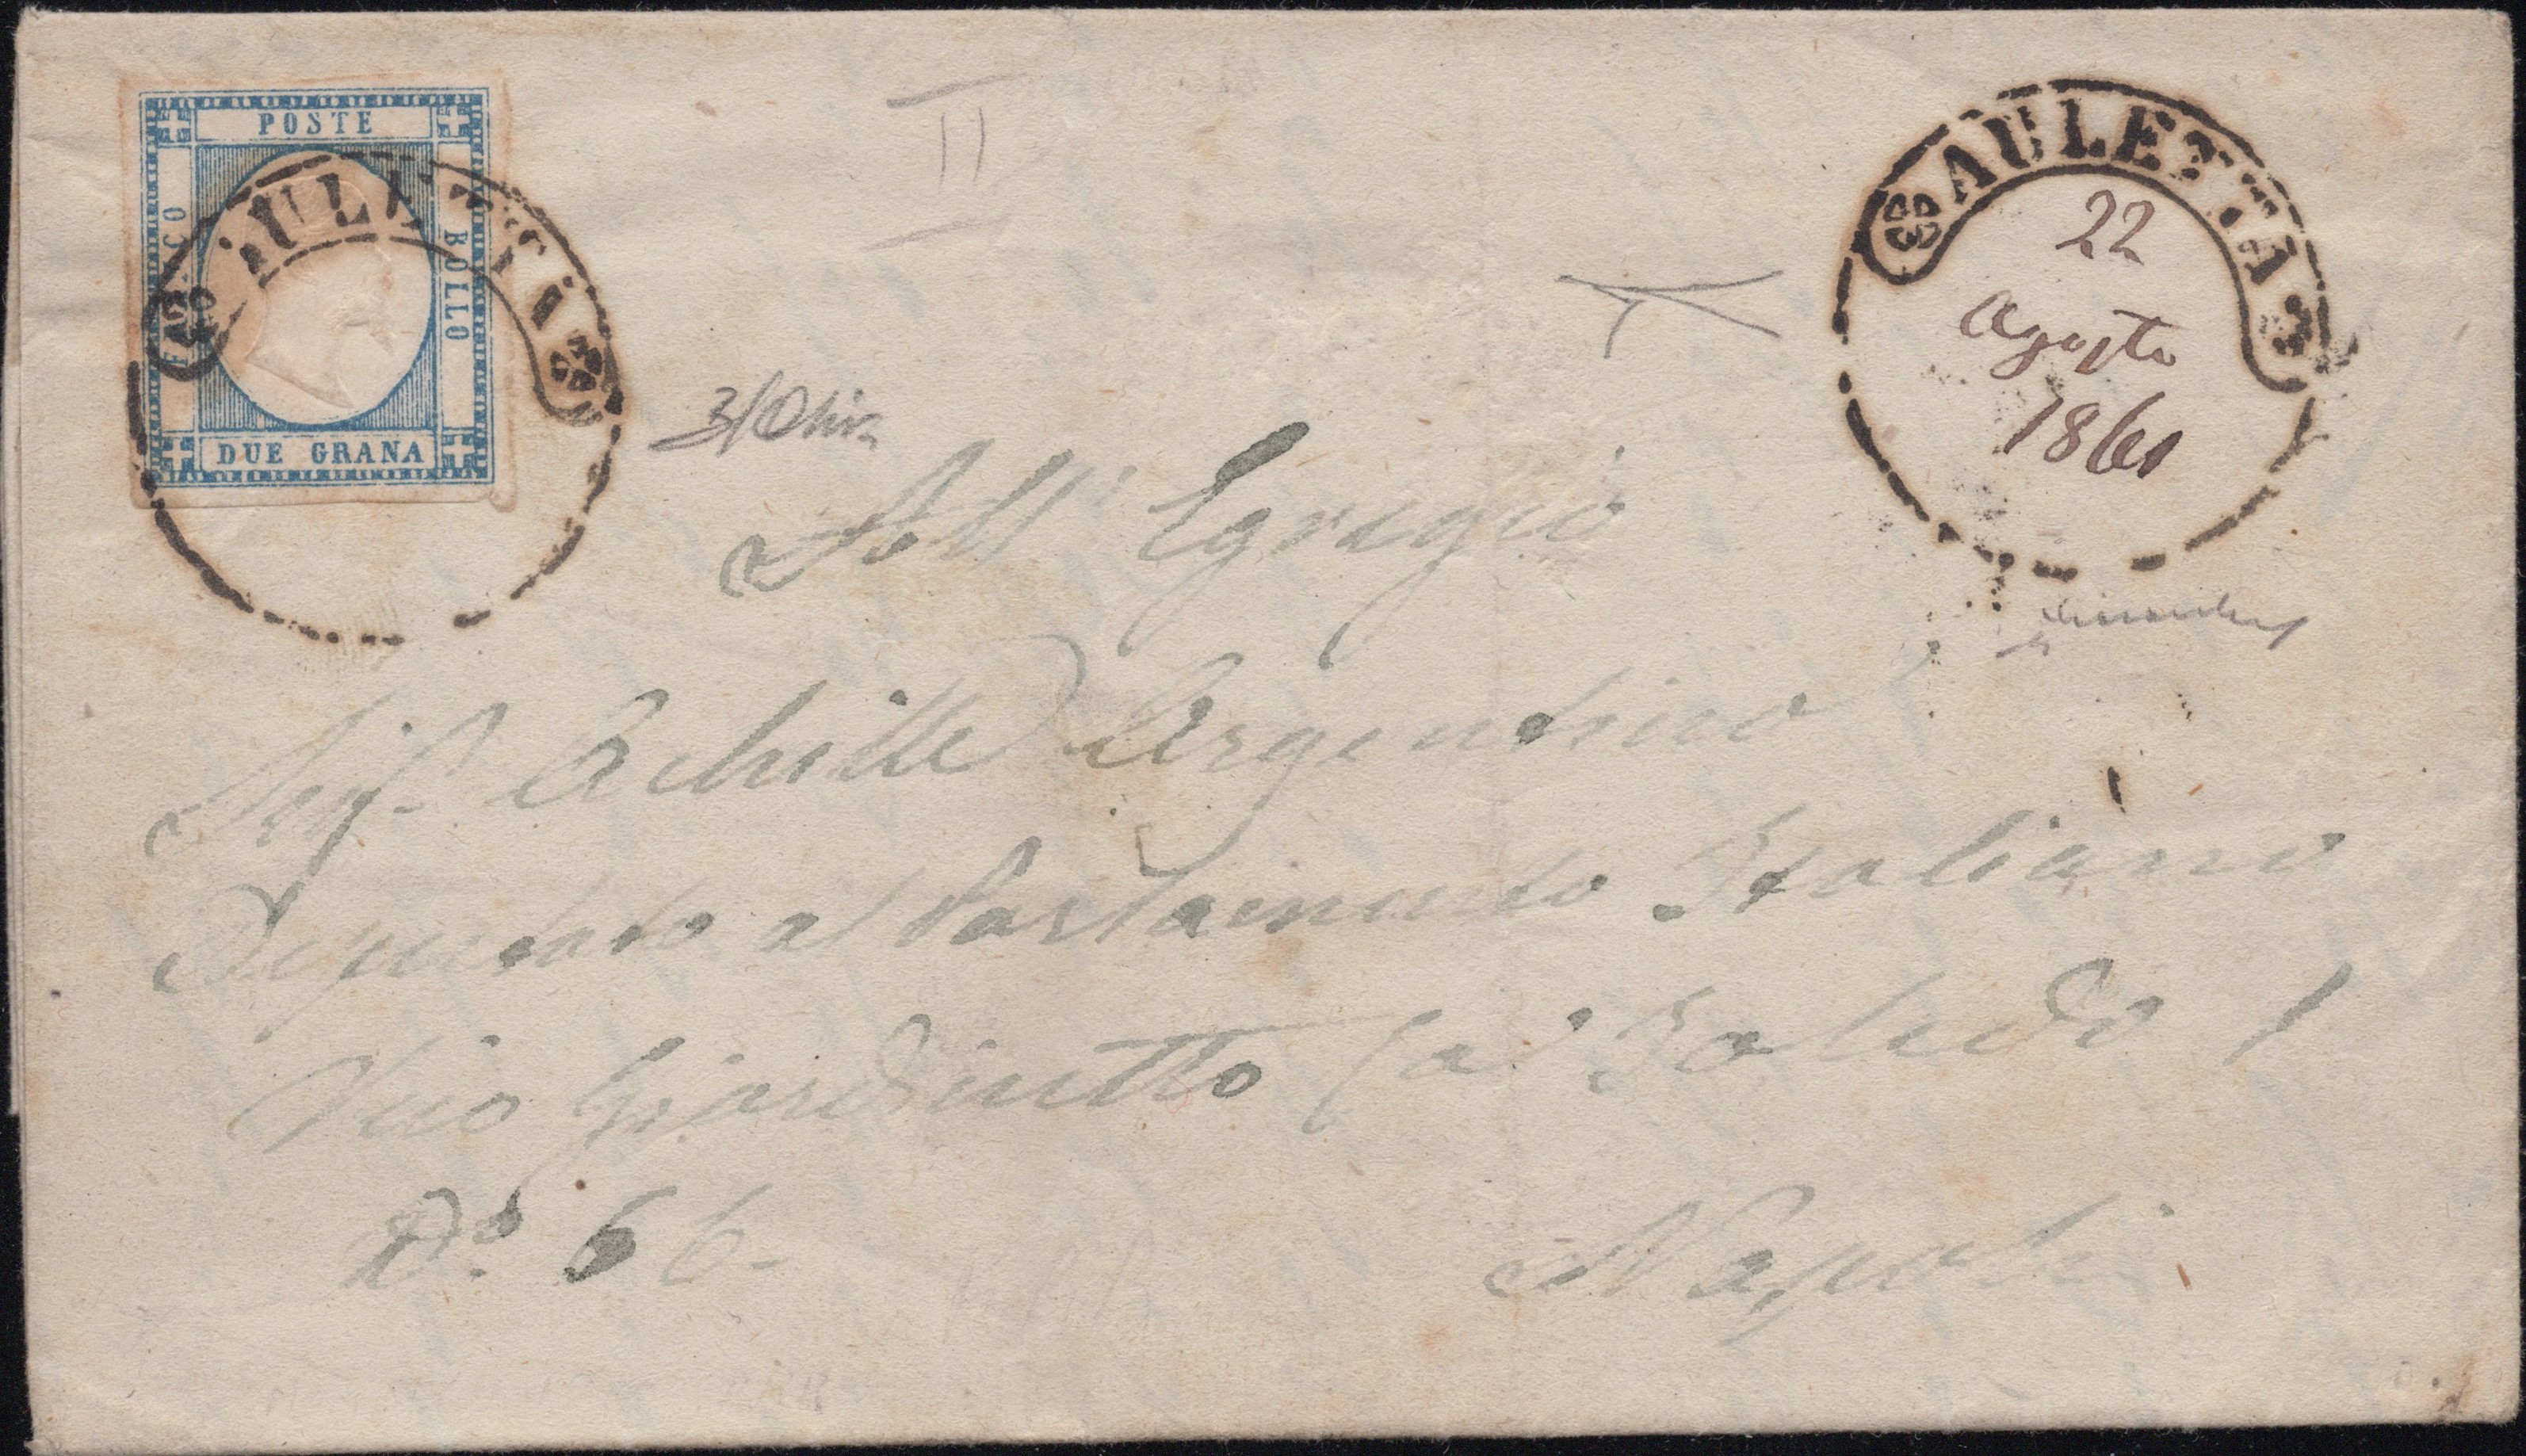 POSTE
FRANCO
BOLLO
DUE GRANA
AULETTA
AULETTA
22
Agosto
1861
II
All' Egregio
Sigr. Achille Argentino
Deputato al Parlamento Italiano
Vico Giardinetto (a Toledo)
No. 66.
Napoli